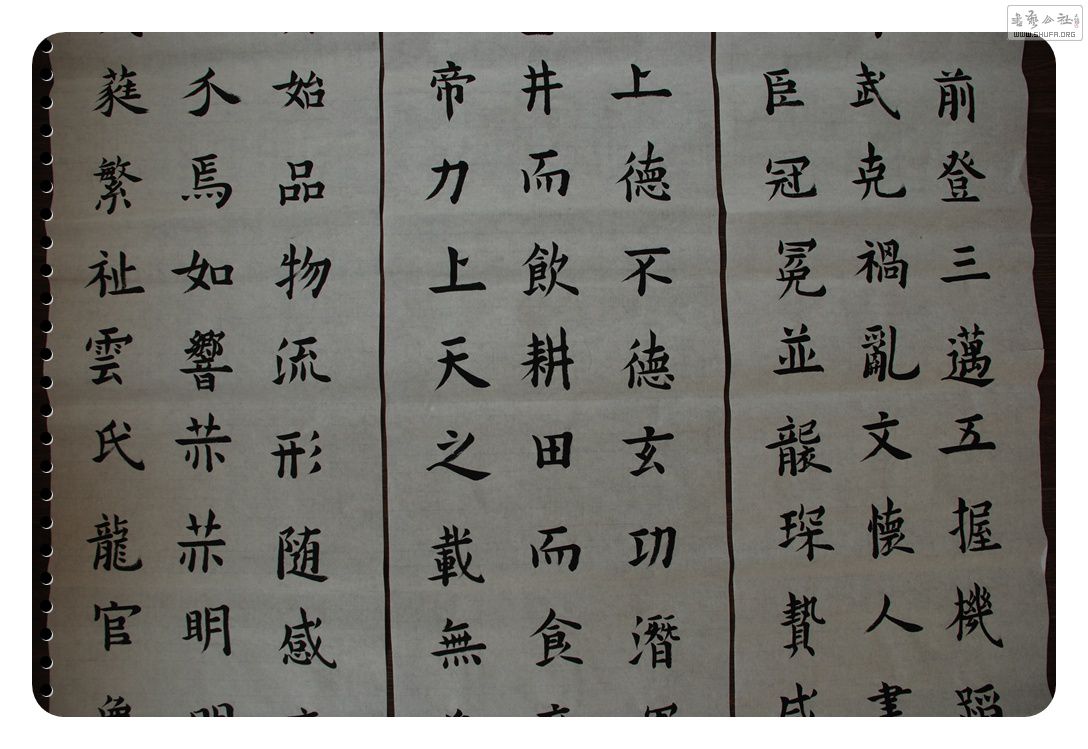 前登三邁五握機蹈
武克禍亂文懷人書
臣冠冕並襲琛贄咸
上德不德玄功潛
井而飲耕田而食
帝力上天之載無
始品物流形随感
介焉如響赫赫明明
蕤繁祉雲氏龍官
書藝公社
WWW.SHUFA.ORG